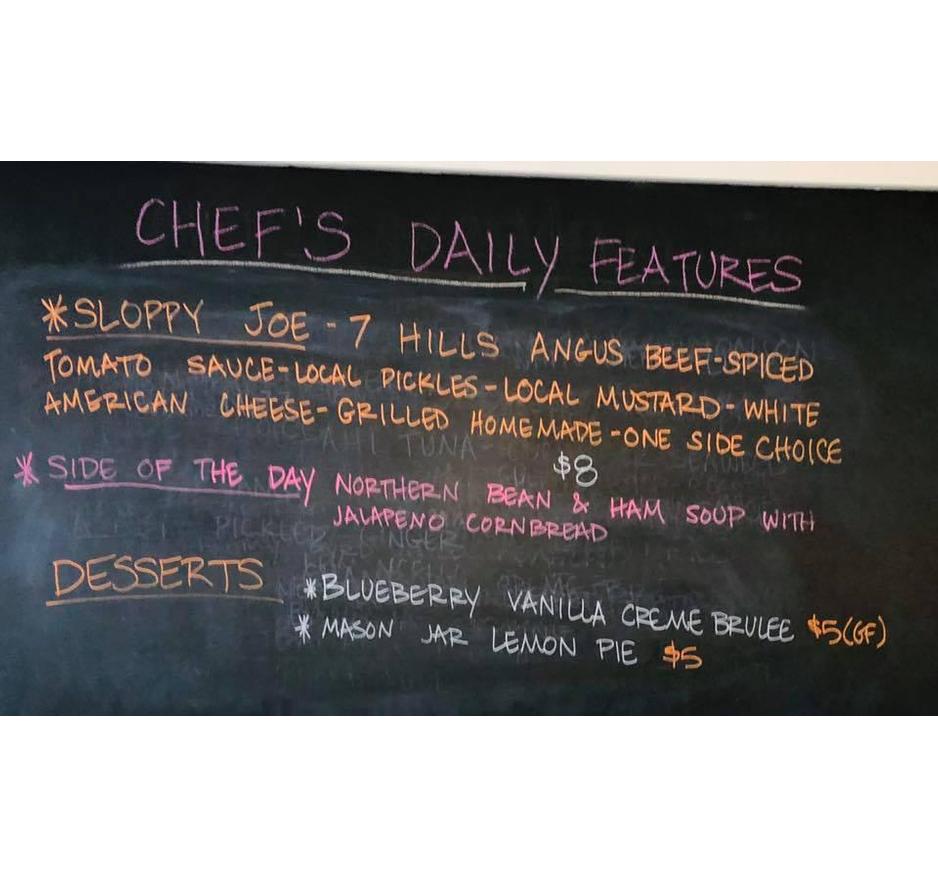 CHEF'S DAILY FEATURES
*SLOPPY JOE - 7 HILLS ANGUS BEEF-SPICED
TOMATO SAUCE-LOCAL PICKLES-LOCAL MUSTARD-WHITE
AMERICAN CHEESE-GRILLED HOMEMADE-ONE SIDE CHOICE
$8
* SIDE OF THE DAY NORTHERN BEAN & HAM SOUP WITH
JALAPENO CORNBREAD
DESSERTS
*BLUEBERRY VANILLA CREME BRULEE $5(GF)
* MASON JAR LEMON PIE $5